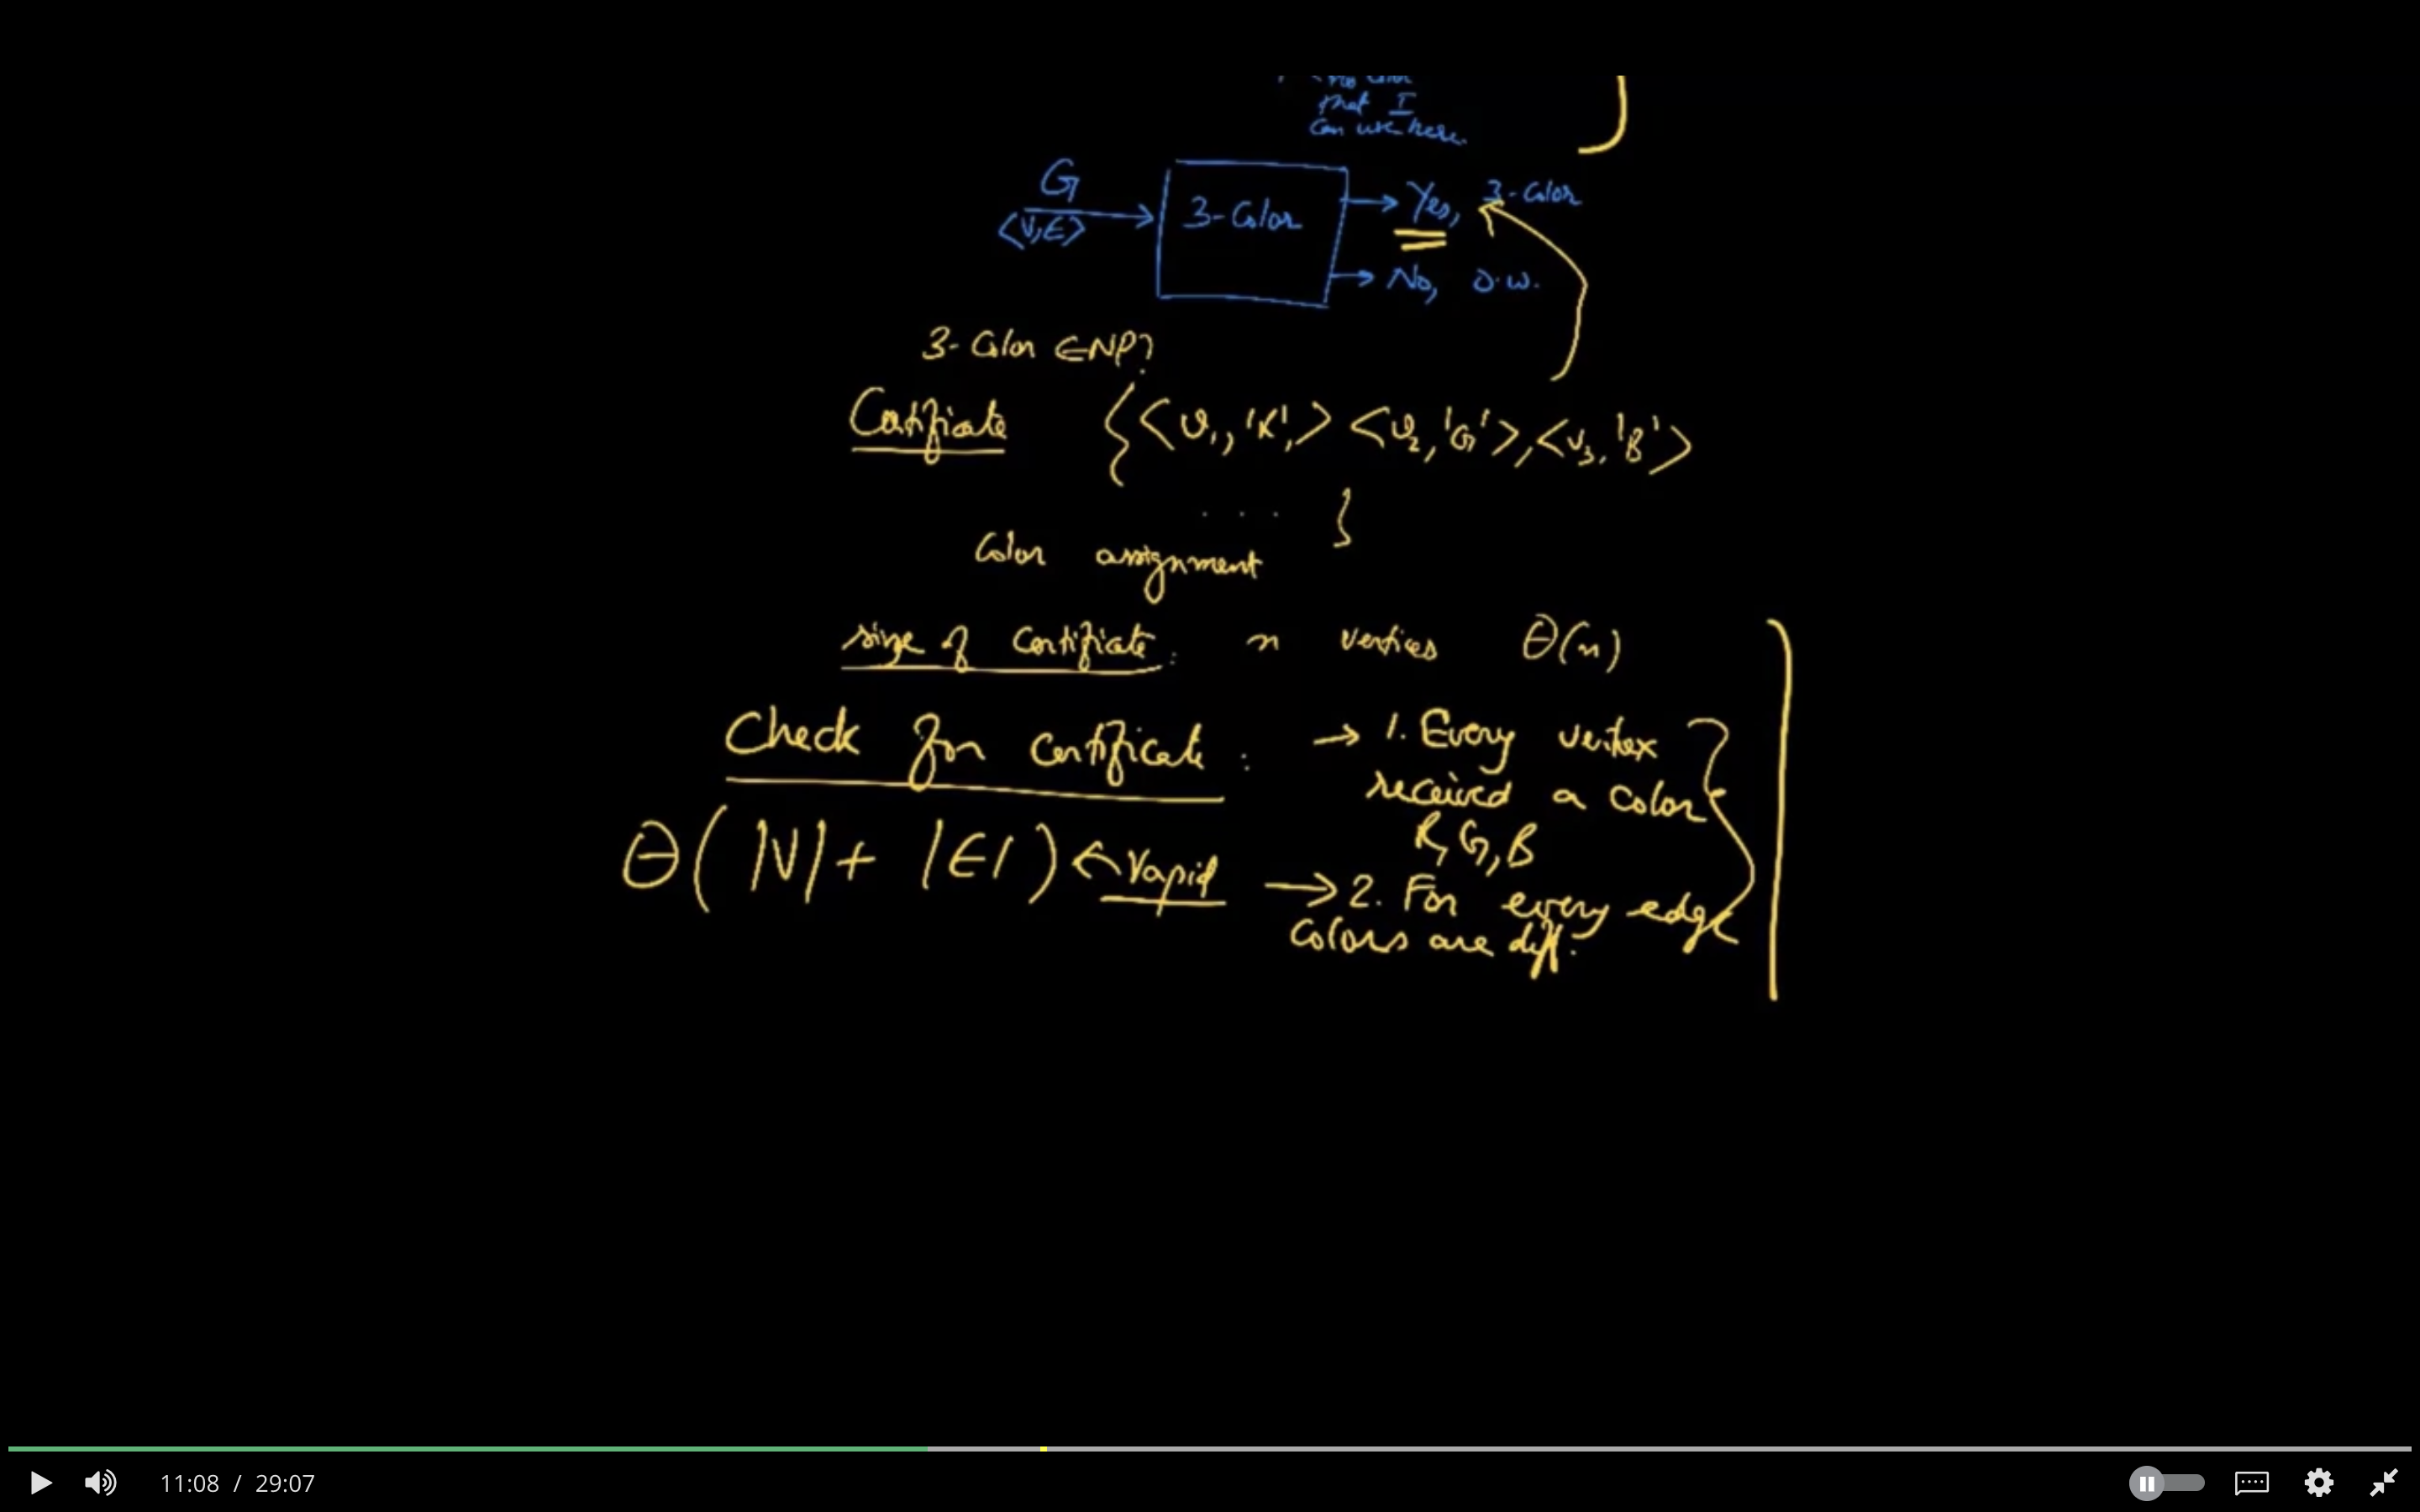 no color
that I
can use here.
G
<V,E>
3-Color
Yes, 3-Color
No, O.W.
3-Color ∈ NP?
Certificate { <v₁, 'R'> <v₂, 'G'>, <v₃, 'B'>
... }
Color assignment
size of Certificate: n vertices Θ(n)
Check for certificate: → 1. Every vertex
received a color
R, G, B
Θ( |V| + |E| ) ← rapid → 2. For every edge
colors are diff.
11:08 / 29:07